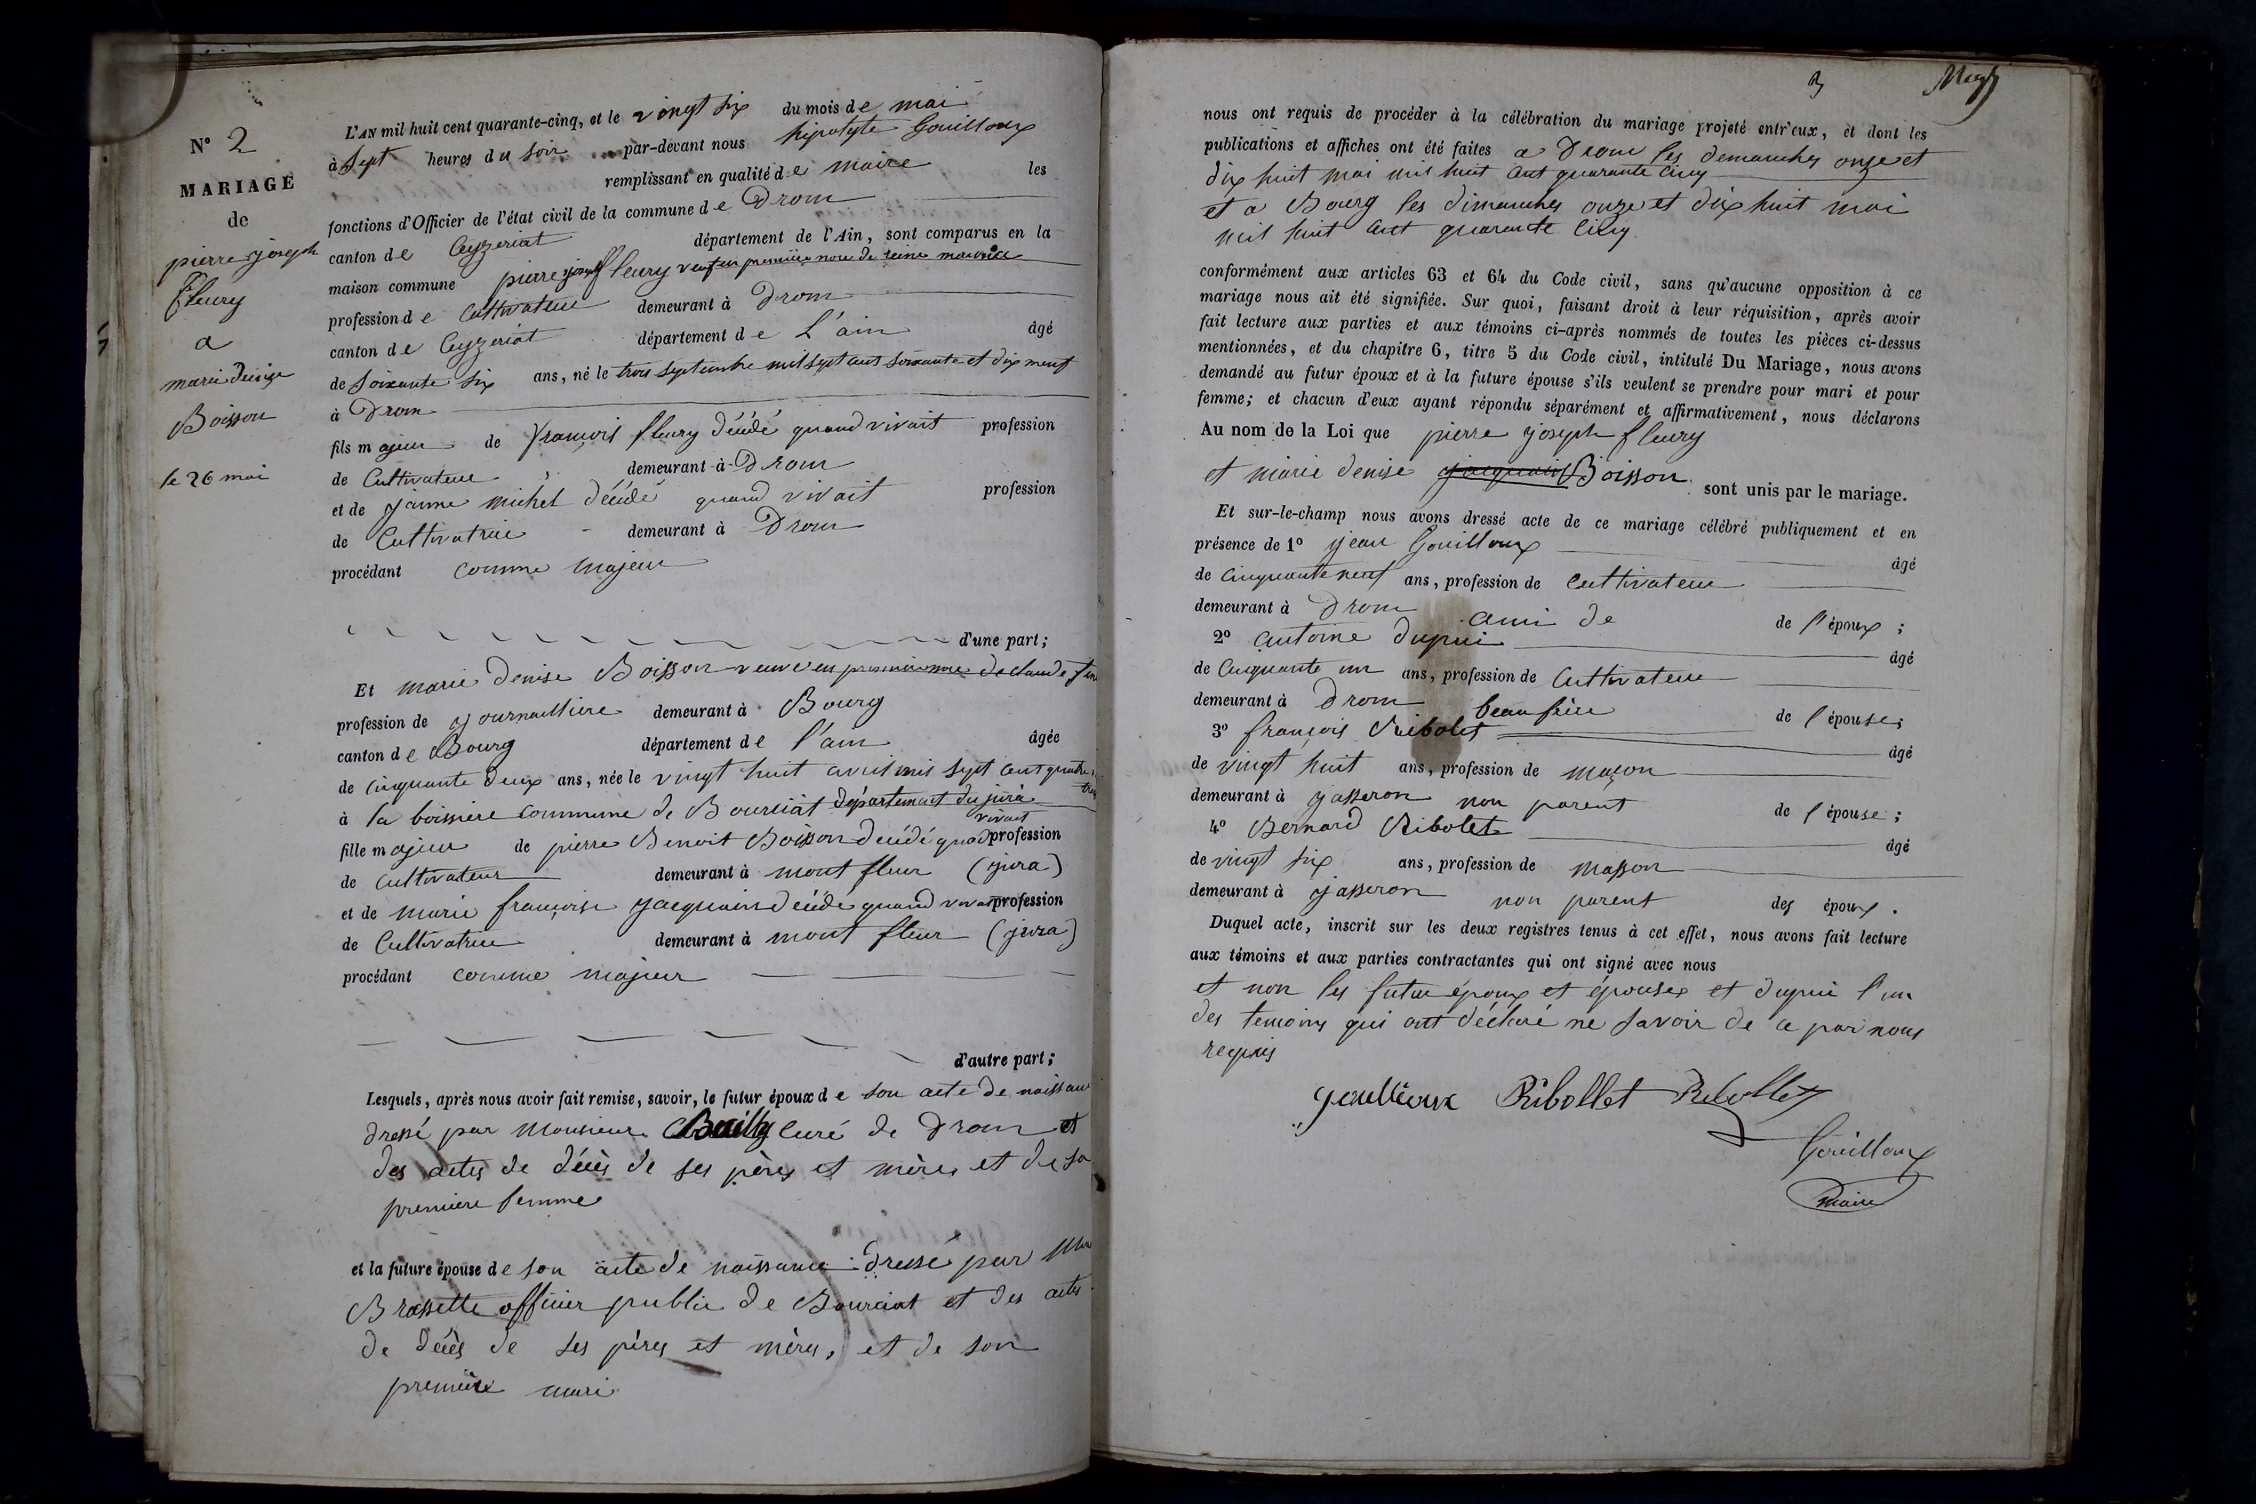 N° 2
MARIAGE
de
pierre joseph
fleury
a
marie denise
Boisson
le 26 mai
L'AN mil huit cent quarante-cinq, et le vingt six du mois de mai
à Sept heures du soir par-devant nous hipolyte Gouilloux
remplissant en qualité de maire les
fonctions d'Officier de l'état civil de la commune de Drom
canton de Ceyzeriat département de l'Ain, sont comparus en la
maison commune pierre joseph fleury veuf en première noce de reine
profession de Cultivateur demeurant à Drom
canton de Ceyzeriat département de L'ain âgé
de soixante six ans, né le trois septembre mil sept cent soixante et dix neuf
à Drom
fils majeur de françois fleury décédé quand vivait profession
de Cultivateur demeurant à Drom
et de janne michel décédé quand vivait profession
de Cultivatrice demeurant à Drom
procédant comme majeur
d'une part;
Et marie Denise Boisson veuve en première noce de claude
profession de journallière demeurant à Bourg
canton de Bourg département de l'ain âgée
de cinquante deux ans, née le vingt huit avril mil sept cent quatre
à la boissière commune de Bourciat département du jura
fille majeur de pierre Benoit Boisson décédé quad vivait profession
de Cultivateur demeurant à mont fleur (jura)
et de marie françoise jacquain décédé quand vivait profession
de Cultivatrice demeurant à mont fleur (jura)
procédant comme majeur
d'autre part;
Lesquels, après nous avoir fait remise, savoir, le futur époux de son acte de naissance
dressé par monsieur Bailly curé de Drom et
des actes de décès de ses pères et mères et de sa
première femme
et la future épouse de son acte de naissance dressé par
Brassette officier public de Bourciat et des actes
de décès de ses pères et mères, et de son
première mari
3
nous ont requis de procéder à la célébration du mariage projeté entr'eux, et dont les
publications et affiches ont été faites a Drom les demanches onze et
dix huit mai mil huit cent quarante cinq
et a Bourg les dimanches onze et dix huit mai
mil huit cent quarante cinq
conformément aux articles 63 et 64 du Code civil, sans qu'aucune opposition à ce
mariage nous ait été signifiée. Sur quoi, faisant droit à leur réquisition, après avoir
fait lecture aux parties et aux témoins ci-après nommés de toutes les pièces ci-dessus
mentionnées, et du chapitre 6, titre 5 du Code civil, intitulé Du Mariage, nous avons
demandé au futur époux et à la future épouse s'ils veulent se prendre pour mari et pour
femme; et chacun d'eux ayant répondu séparément et affirmativement, nous déclarons
Au nom de la Loi que pierre joseph fleury
et marie denise jacquain Boisson sont unis par le mariage.
Et sur-le-champ nous avons dressé acte de ce mariage célébré publiquement et en
présence de 1° jean Gouilloux âgé
de cinquante neuf ans, profession de cultivateur
demeurant à Drom ami de de l'époux;
2° antoine dupui âgé
de cinquante un ans, profession de Cultivateur
demeurant à Drom beau frère de l'épouse;
3° françois Ribolet âgé
de vingt huit ans, profession de maçon
demeurant à jasseron non parent de l'épouse;
4° Bernard Ribolet âgé
de vingt six ans, profession de masson
demeurant à jasseron non parent des époux.
Duquel acte, inscrit sur les deux registres tenus à cet effet, nous avons fait lecture
aux témoins et aux parties contractantes qui ont signé avec nous
et non les futur époux et épouses et dupui l'un
des temoins qui ont déclaré ne savoir de ce par nous
requis
goullioux Ribollet Ribollet
Gouilloux
maire